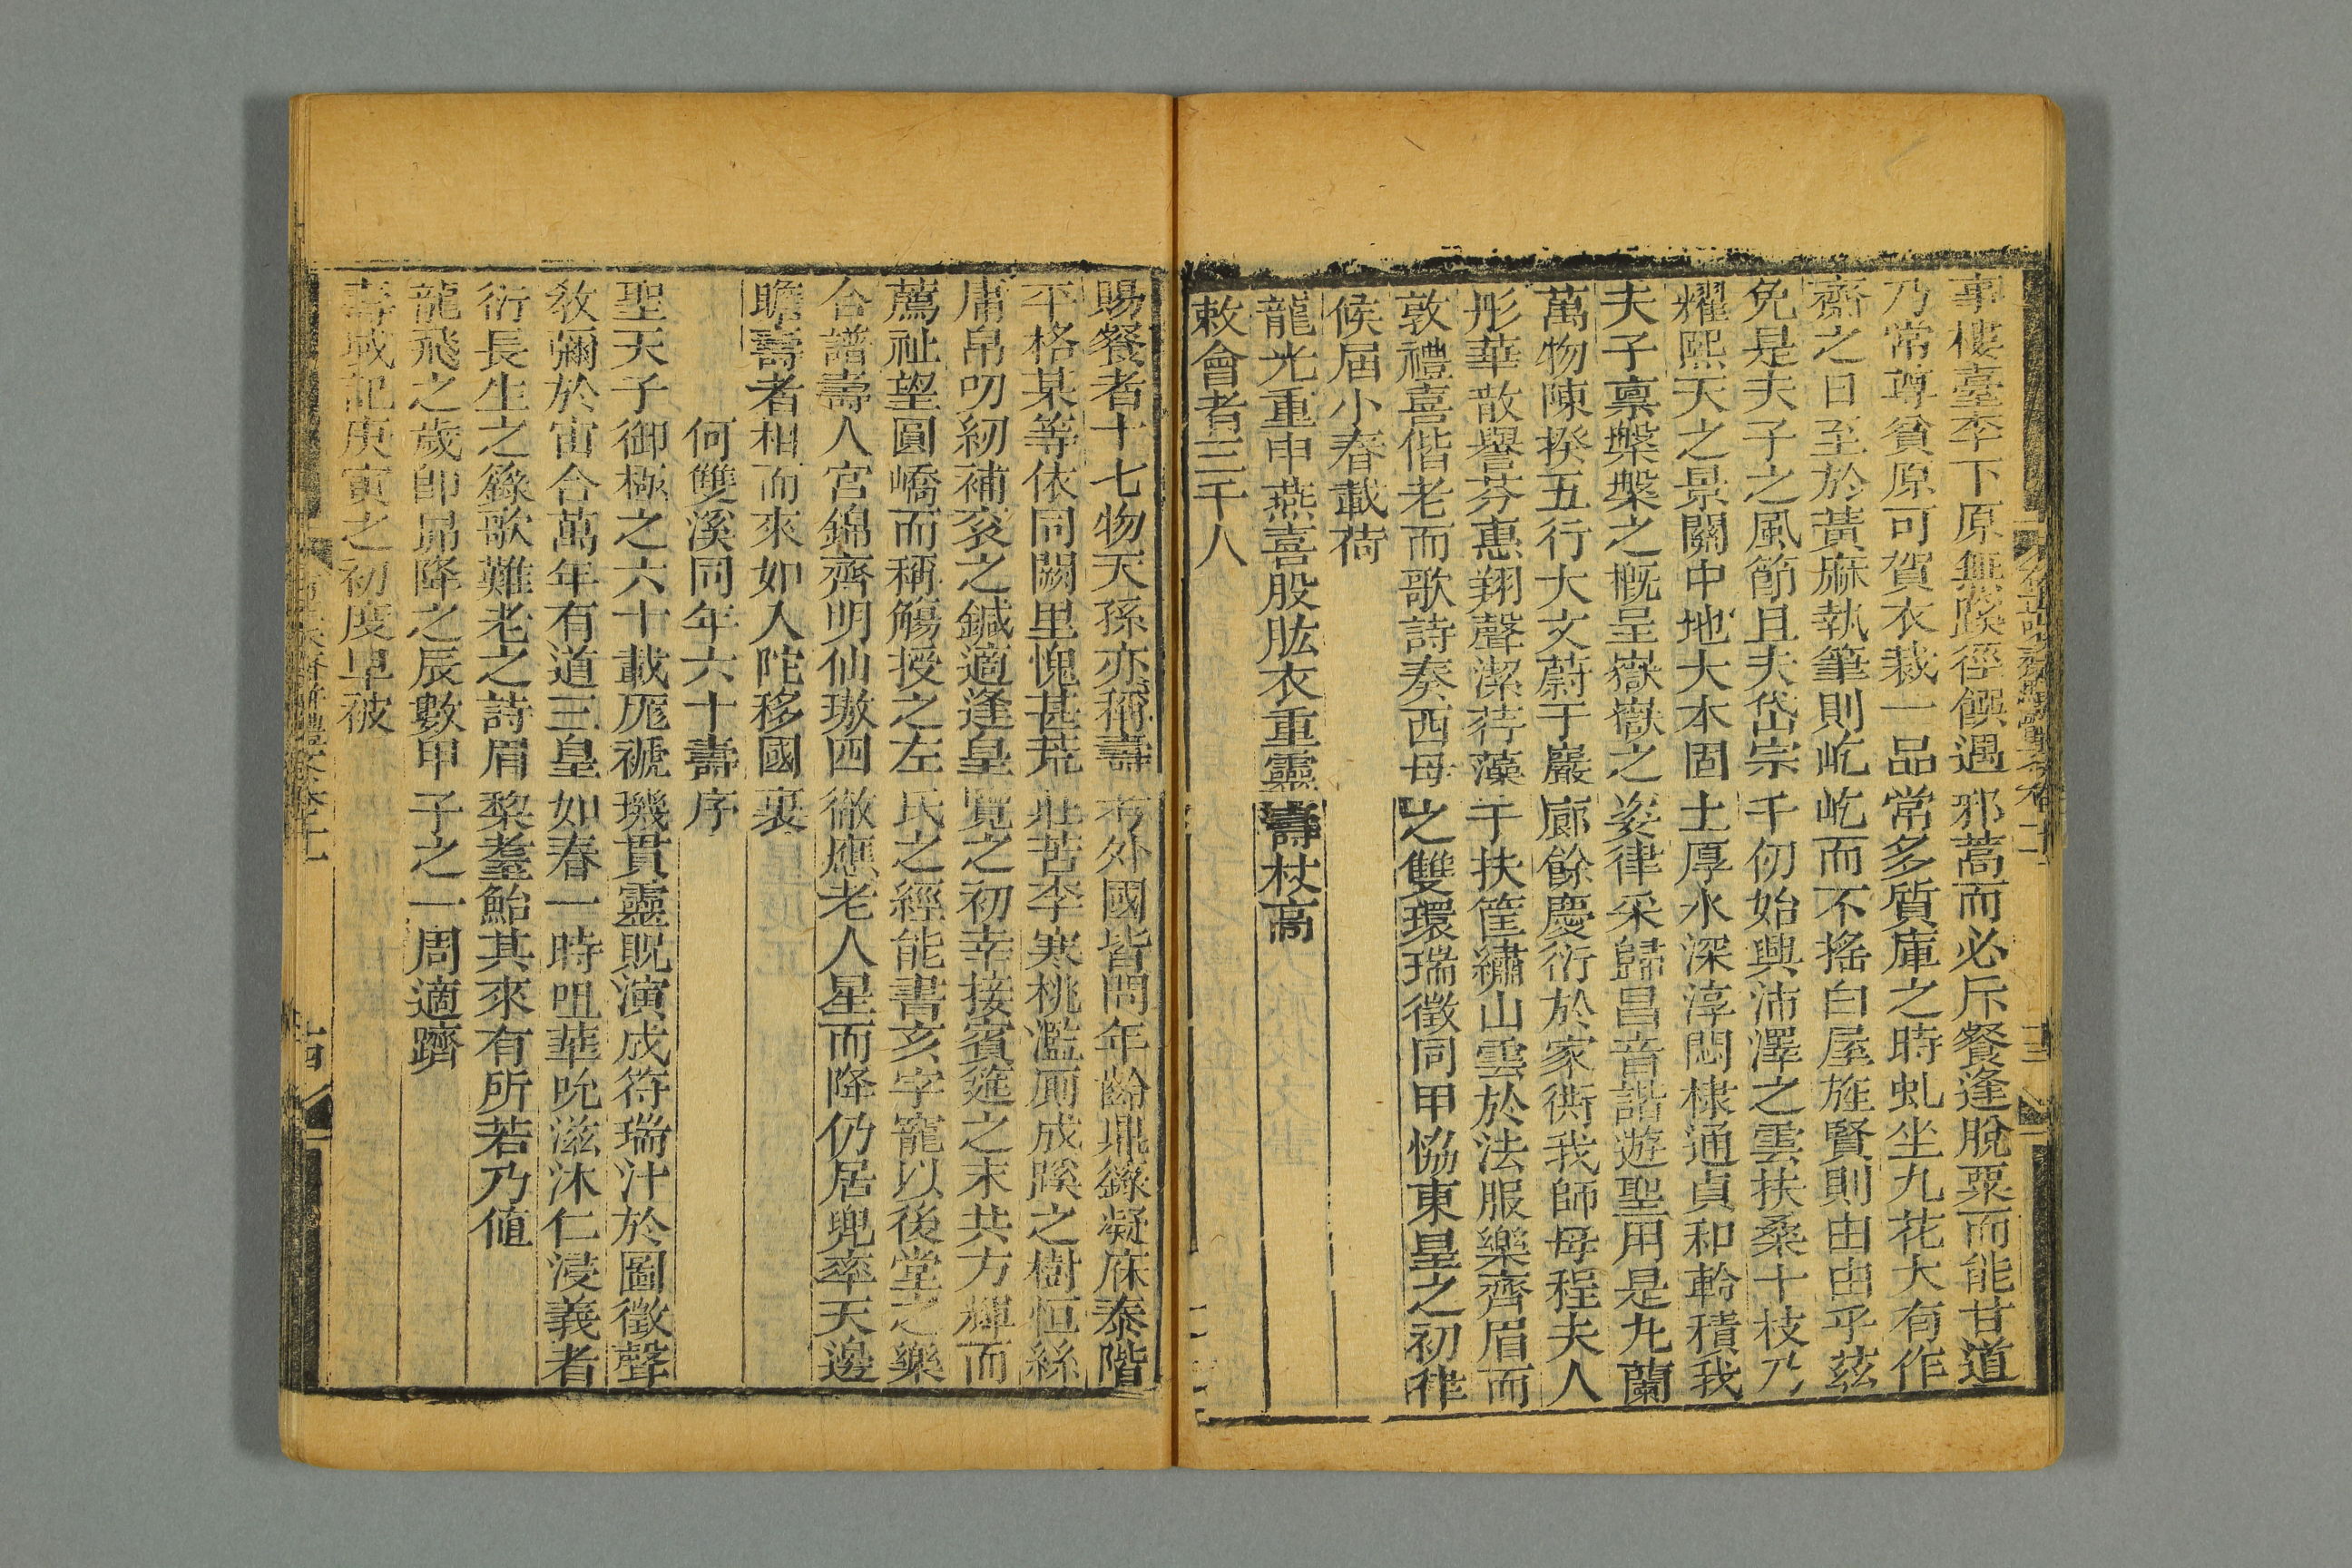 事樓臺李下原無蹊徑饌遇邪蒿而必斥餐逢脫粟而能甘道
乃常尊貧原可賀衣裁一品常多質庫之時虬坐九花大有作
齋之日至於黃麻執筆則屹屹而不搖白屋旌賢則由由乎茲
免是夫子之風節且夫岱宗千仞始興沛澤之雲扶桑十枝乃
耀熙天之景關中地大本固土厚水深淳悶棣通貞和軫積我
夫子禀槃槃之概呈嶽嶽之姿律采歸昌音諧遊聖用是九蘭
萬物陳揆五行大文蔚于巖廊餘慶衍於家衖我師母程夫人
彤華散譽芬惠翔聲潔荇藻于扶筐繡山雲於法服樂齊眉而
敦禮喜偕老而歌詩奏西母之雙環瑞徵同甲恊東皇之初律
候屆小春載荷
龍光重申燕喜股肱衣重靈壽杖高
敕會者三千人
賜餐者十七物天孫亦稱壽考外國皆問年齡鼎籙凝庥泰階
平格某等依同闕里愧甚荒莊苦李寒桃濫厠成蹊之樹恒絲
庸帛叨紉補袞之鍼適逢皇覽之初幸接賓筵之末共方輝而
薦祉望圓嶠而稱觴授之左氏之經能書亥字寵以後堂之樂
合譜壽人宮錦齊明仙璈四徹應老人星而降仍居兜率天邊
瞻壽者相而來如入陀移國裏
何雙溪同年六十壽序
聖天子御極之六十載庬禠璣貫靈貺演成符瑞汁於圖徵聲
敎彌於宙合萬年有道三皇如春一時咀華吮滋沐仁浸義者
衍長生之籙歌難老之詩眉黎耋鮐其來有所若乃値
龍飛之歲卽昴降之辰數甲子之一周適躋
壽域記庚寅之初度早被